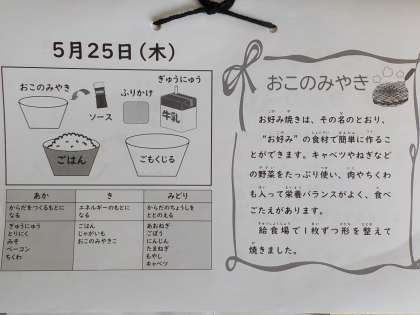 5月25日(木)
ぎゅうにゅう
おこのみやき
ソース
ふりかけ
牛乳
ごはん
ごもくじる
あか
き
みどり
からだをつくるもとに
なる
エネルギーのもとに
なる
からだのちょうしを
ととのえる
ぎゅうにゅう
とりにく
みそ
ベーコン
ちくわ
ごはん
じゃがいも
おこのみやきこ
あおねぎ
ごぼう
にんじん
たまねぎ
もやし
キャベツ
おこのみやき
お好み焼きは、その名のとおり、
"お好み"の食材で簡単に作るこ
とができます。キャベツやねぎなど
の野菜をたっぷり使い、肉やちくわ
も入って栄養バランスがよく、食べ
ごたえがあります。
給食場で1枚ずつ形を整えて
焼きました。